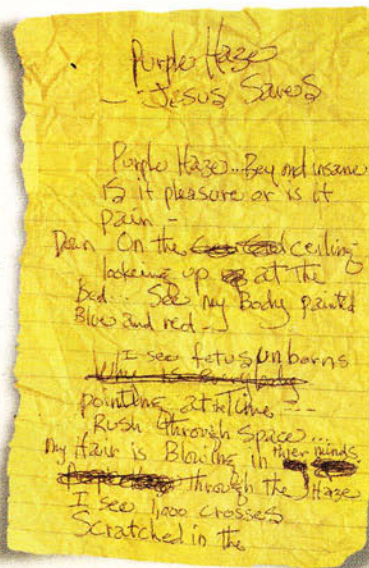 Purple Haze
— Jesus Saves
Purple Haze... Beyond insane
Is it pleasure or is it
pain -
Down On the ceiling
looking up at the
Bed... See my Body painted
Blue and red -
I see fetus unborns
pointing at Time ---
Rush through space...
My Hair is Blowing in thier minds
through the Haze
I see 1,000 crosses
Scratched in the